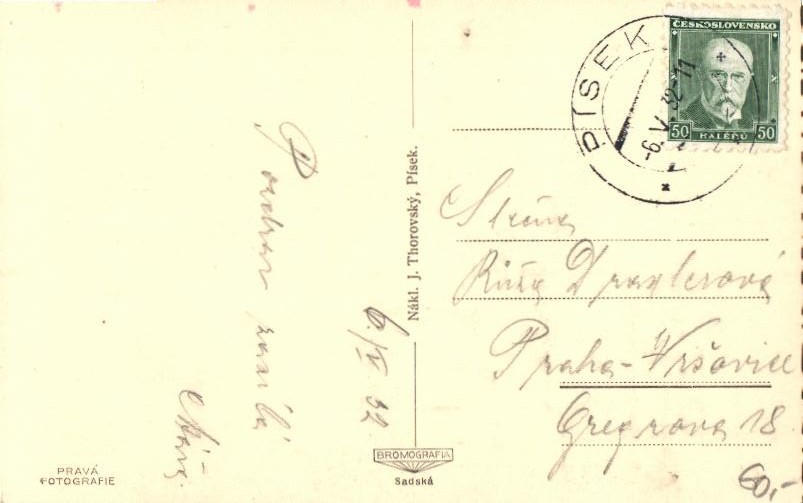 ČESKOSLOVENSKO
50 HALÉŘŮ 50
PÍSEK
-6.V.32-11
Pozdrav
zasílá
6./V 32
Nákl. J. Thorovský, Písek.
Slečna
Růža Draxlerová
Praha-Vršovice
Gregrova 18.
60,-
BROMOGRAFIA
Sadská
PRAVÁ
FOTOGRAFIE